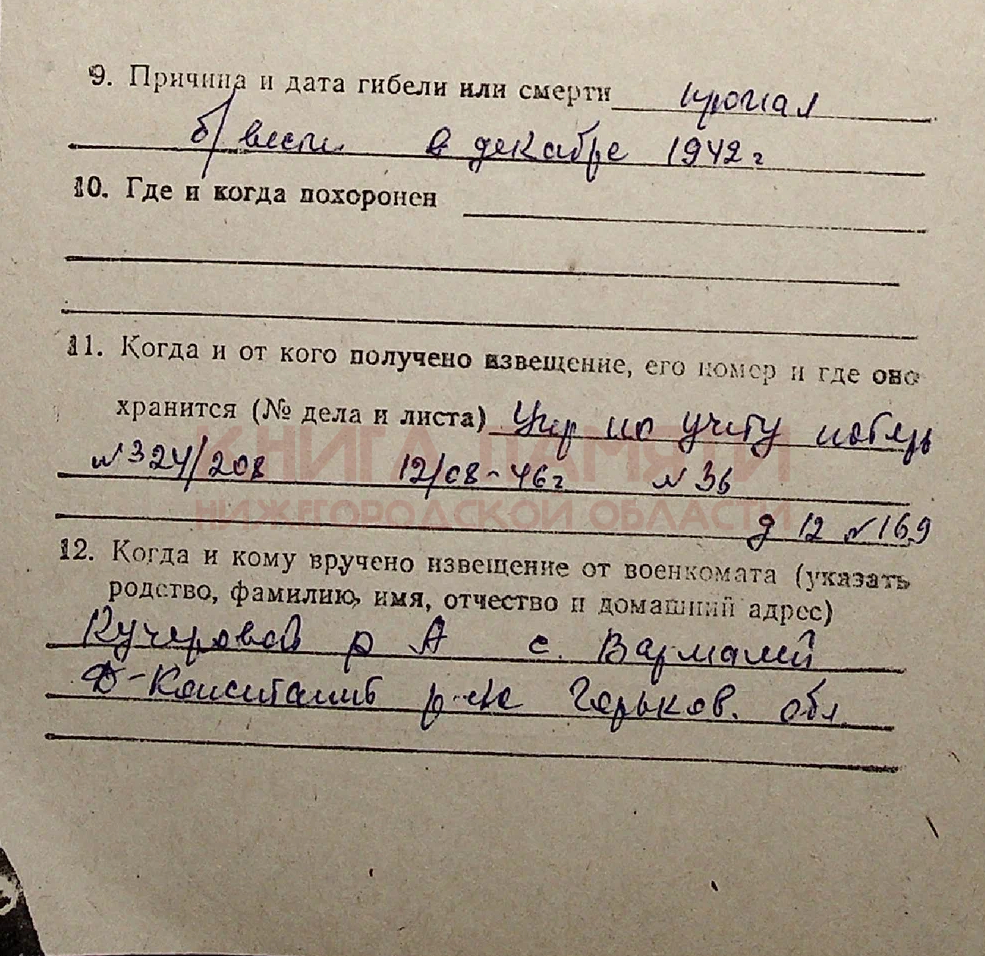 9. Причина и дата гибели или смерти пропал
б/ вести в декабре 1942 г
10. Где и когда похоронен
11. Когда и от кого получено извещение, его номер и где оно
хранится (№ дела и листа) Упр по учету потерь
№ 324/208 12/08-46 г № 36
КНИГА ПАМЯТИ
НИЖЕГОРОДСКОЙ ОБЛАСТИ
д 12 № 169
12. Когда и кому вручено извещение от военкомата (указать
родство, фамилию, имя, отчество и домашний адрес)
Кучеровой р А с. Вармалей
Д-Констант р-на Горьков. обл